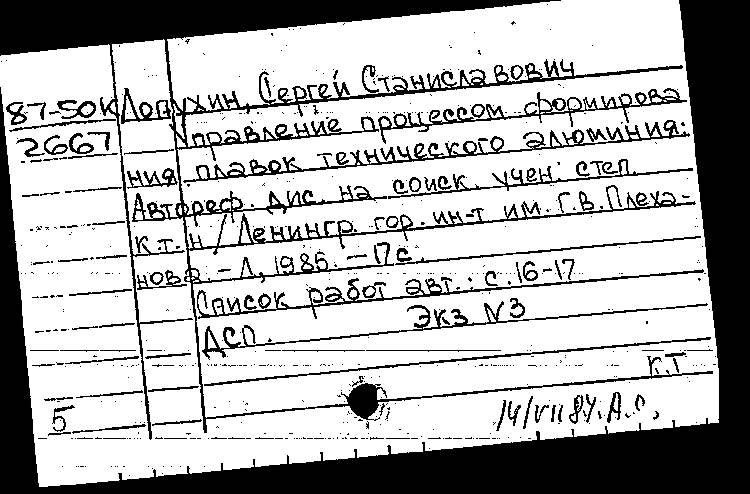 87-50К Лопухин, Сергей Станиславович
2667 Управление процессом формирова
ния плавок технического алюминия:
Автореф. дис. на соиск. учен. степ.
к.т.н / Ленингр. гор. ин-т им. Г.В. Плеха-
нова. - Л, 1985. - 17 с.
Список работ авт.: с. 16-17
ДСП. Экз N3
к.т
5 14/VII 87. А.С.